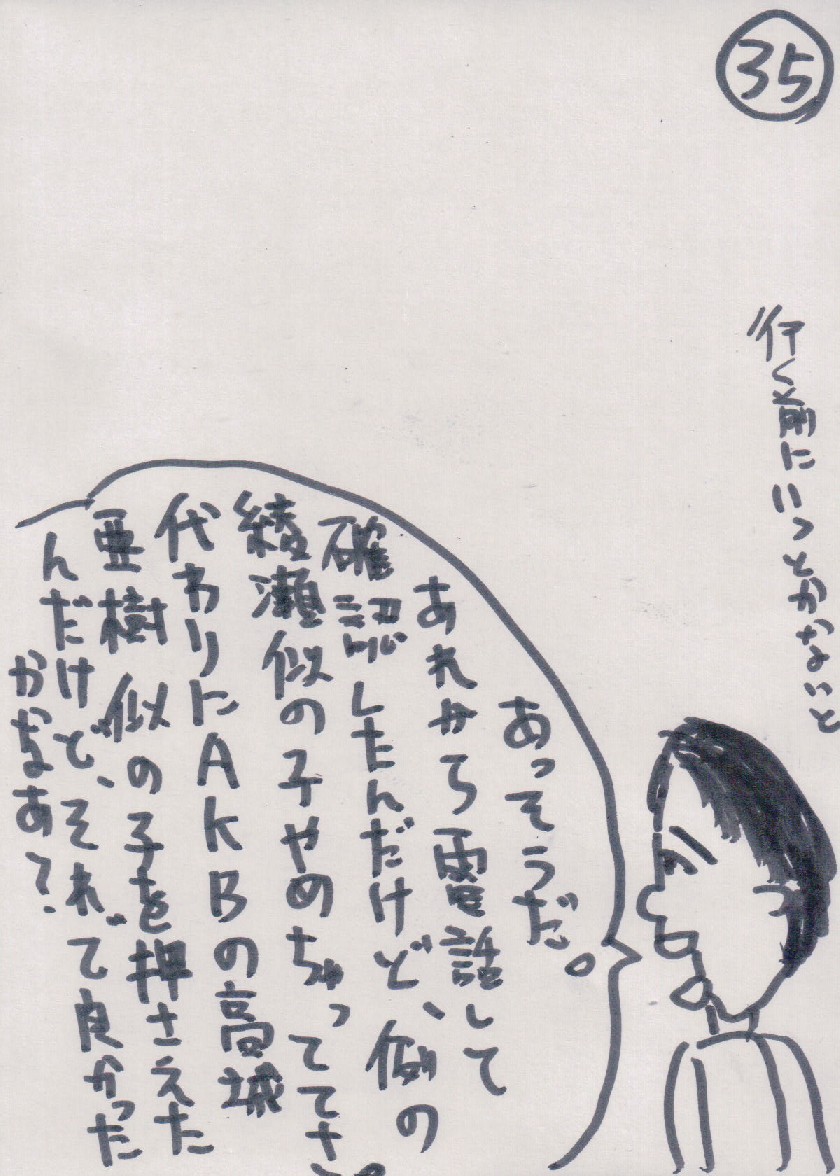 35
行く前に
あっそうだ。
あれから電話して
確認したんだけど、例の
綾瀬似の子やめちゃっててさ。
代わりにAKBの高城
亜樹似の子を押さえた
んだけど、それで良かった
かなあ?